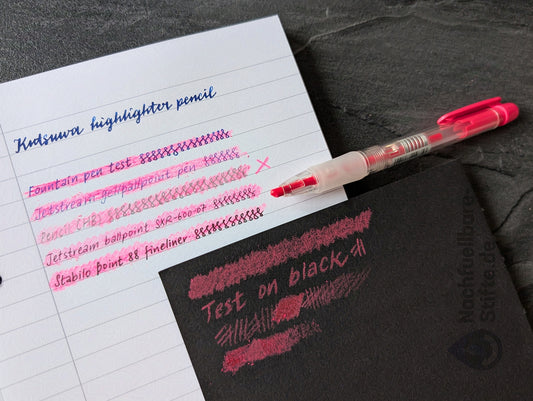 Kutsuwa highlighter pencil
Fountain pen test
Jetstream gel/ballpoint pen
Pencil (HB)
Jetstream ballpoint SXR-600-07
Stabilo point 88 fineliner
Test on black
Nachfüllbare
Stifte.de